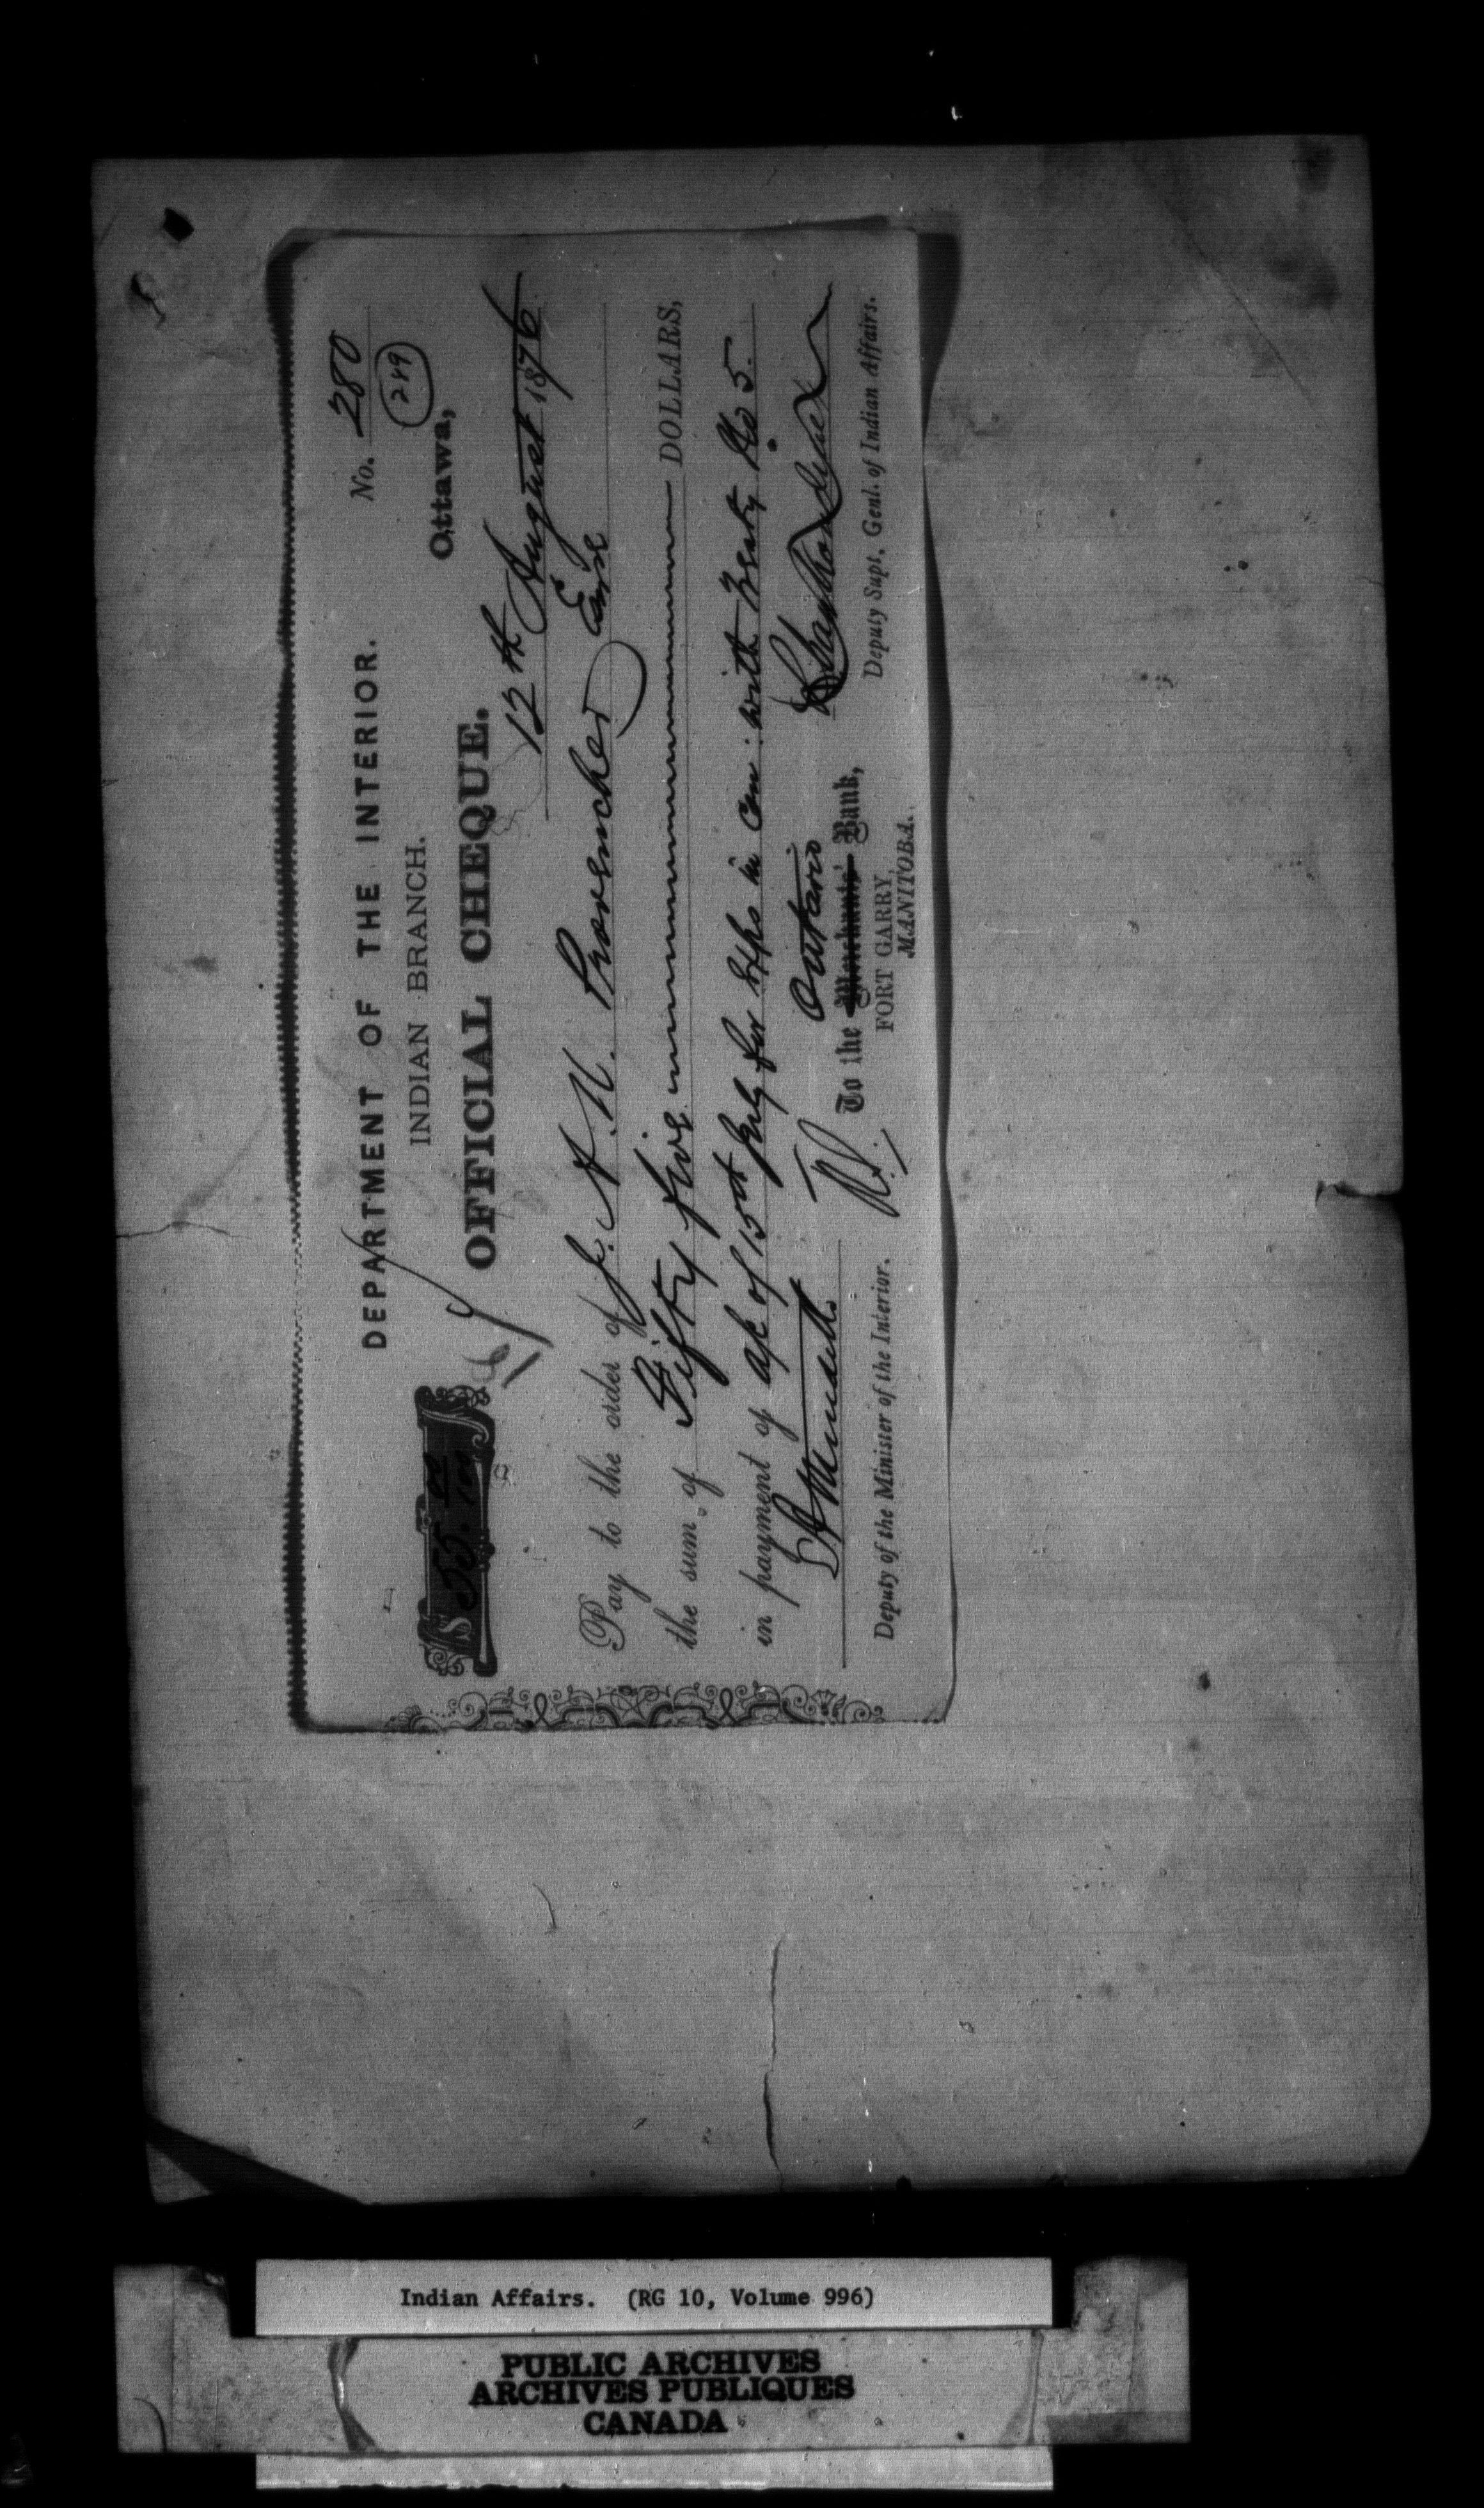 No. 280
249
DEPARTMENT OF THE INTERIOR.
INDIAN BRANCH.
Ottawa,
OFFICIAL CHEQUE.
$55. 00/100
12th August 1876
Pay to the order of J. A. N. Provencher Esqre
the sum of Fifty five DOLLARS,
in payment of a/c of 15th July for exps in con: with Treaty No 5.
Ontario
To the Merchants' Bank,
FORT GARRY,
MANITOBA.
Deputy of the Minister of the Interior.
Deputy Supt. Genl. of Indian Affairs.
Indian Affairs. (RG 10, Volume 996)
PUBLIC ARCHIVES
ARCHIVES PUBLIQUES
CANADA